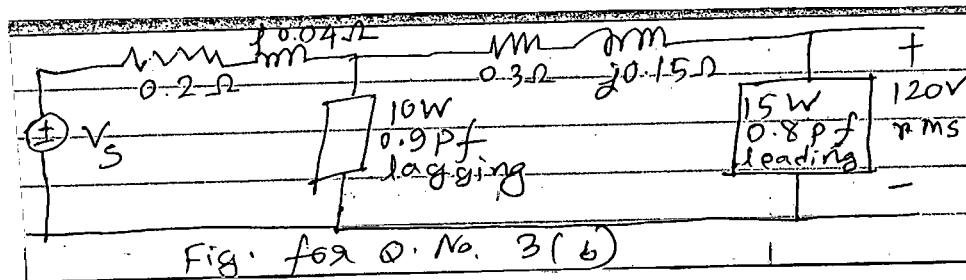 j0.04Ω
0.2Ω
0.3Ω
j0.15Ω
+
Vs
10W
0.9Pf
lagging
15W
0.8Pf
leading
120V
rms
-
Fig. for Q. No. 3(b)